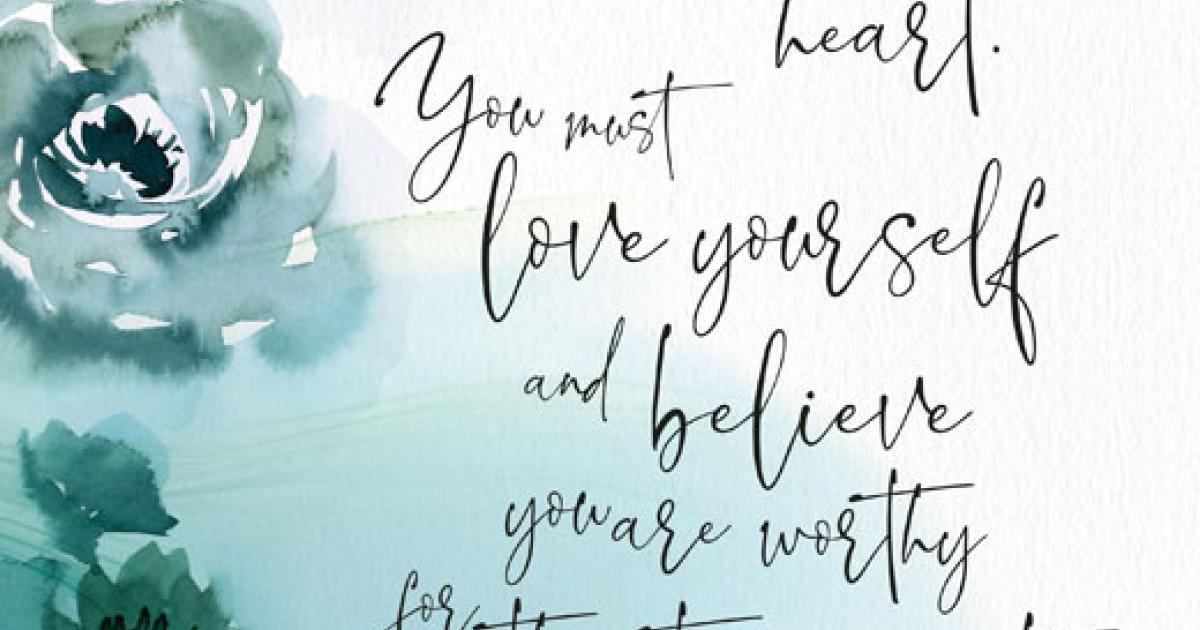 heart.
You must
love yourself
and believe
you are worthy
for